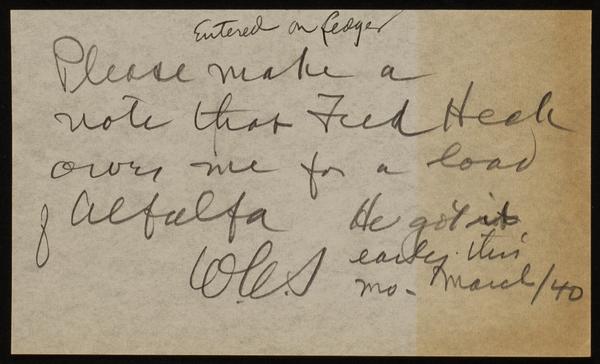 Entered on Ledger
Please make a
note that Fred Heck
owes me for a load
of Alfalfa
He got it
early this
W.C.S
mo - March/40